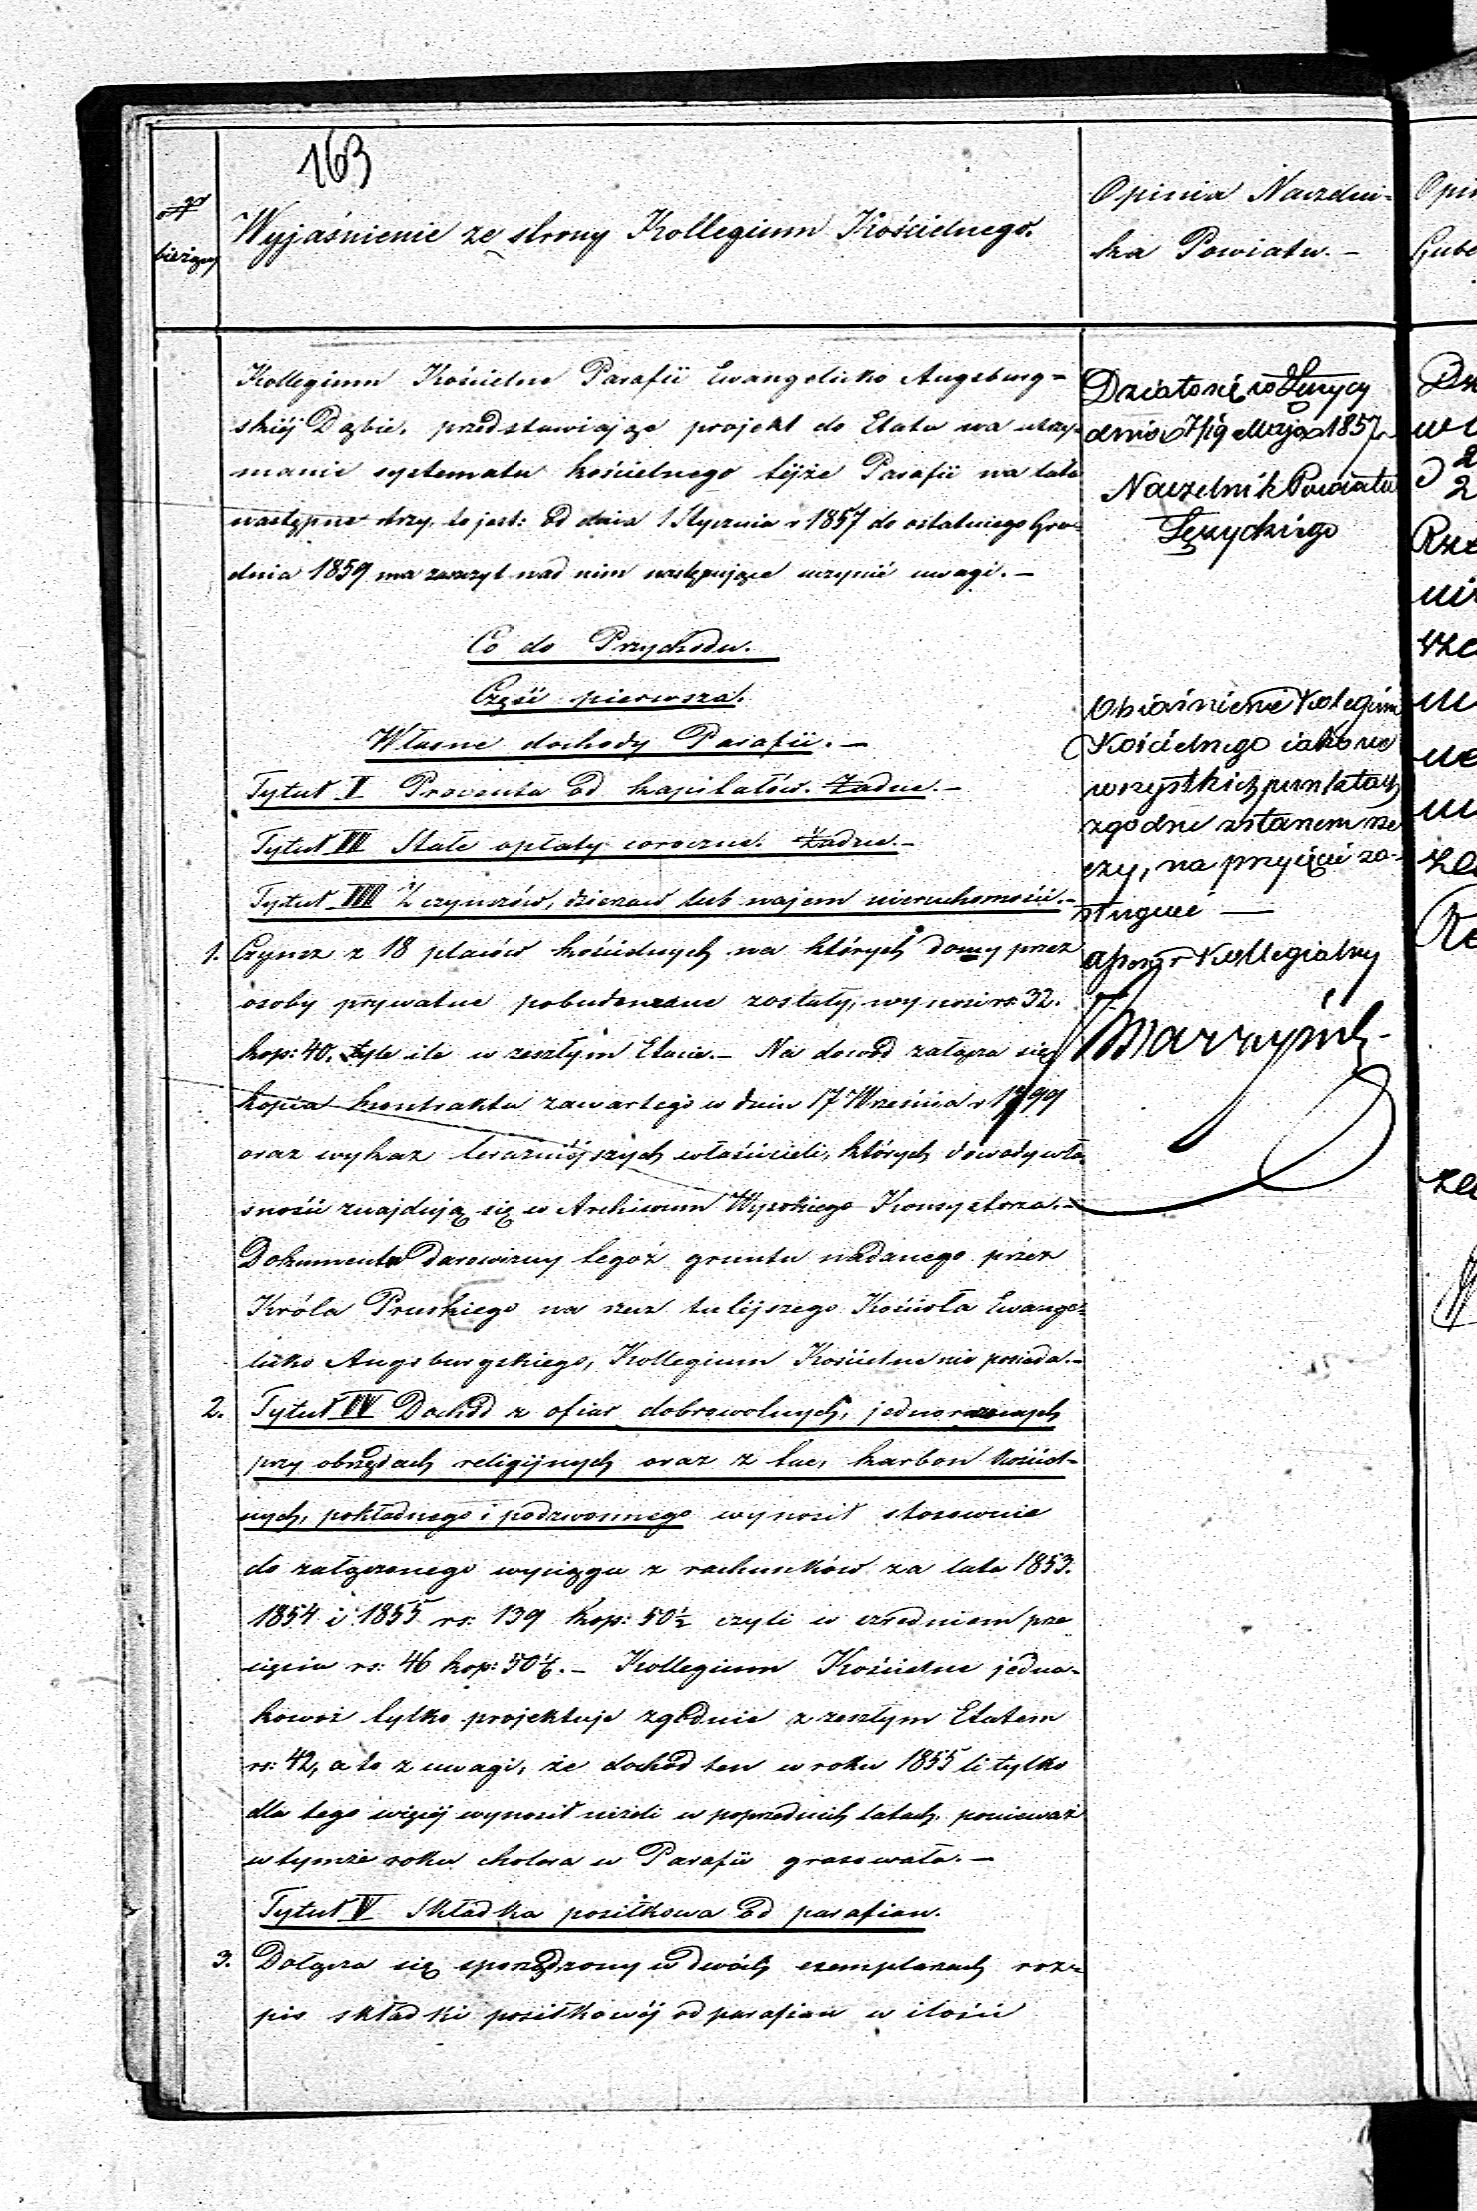 163
N
bieżący
Wyjaśnienie ze strony Kollegium Kościelnego.
Opinia Naczelni-
ka Powiatu. –
Kollegium Kościelne Parafii Ewangelicko Augsburg-
skiéj Dąbie, przedstawiając projekt do Etatu na utrzy-
manie systematu kościelnego téjże Parafii na lata
następne trzy, to jest: od dnia 1 Stycznia r 1857 do ostatniego Gru-
dnia 1859 ma zaszczyt nad nim następujące uczynić uwagi. –
Co do Przychodu.
Część pierwsza.
Własne dochody Parafii. –
Tytuł I Procenta od kapitałów. Żadne. –
Tytuł II Stałe opłaty coroczne. Żadne. –
Tytuł III Z czynszów, dzierzaw lub najem nieruchomości. –
1. Czynsz z 18 placów kościelnych na których domy przez
osoby prywatne pobudowane zostały, wynosi rs. 32.
kop: 40. tyle ile w zeszłym Etacie. – Na dowód załącza się
kopia kontraktu zawartego w dniu 17 Września r 1799
oraz wykaz teraźniéjszych właścicieli, których dowody wła-
sności znajdują się w Archiwum Wysokiego Konsystorza. –
Dokumentu darowizny tegoż gruntu nadanego przez
Króla Pruskiego na rzecz tutéjszego Kościoła Ewange-
licko Augsburgskiego, Kollegium Kościelne nie posiada. –
2. Tytuł IV Dochód z ofiar dobrowolnych, jednorazowych
przy obrzędach religijnych oraz z tac, karbon kościel-
nych, pokładnego i podzwonnego wynosił stosownie
do załączonego wyciągu z rachunków za lata 1853.
1854 i 1855 rs. 139 kop: 50½ czyli w średniem prze
cięciu rs: 46 kop: 50⅙. – Kollegium Kościelne jedna-
kowoż tylko projektuje zgodnie z zeszłym Etatem
rs: 42, a to z uwagi, że dochód ten w roku 1855 li tylko
dla tego więcéj wynosił niżeli w poprzednich latach, ponieważ
w tymże roku cholera w Parafii grasowała. –
Tytuł V Składka posiłkowa od parafian.
3. Dołącza się sporządzony w dwóch exemplarzach roz-
pis składki posiłkowéj od parafian w ilości
Działo się w Łęczycy
dnia 7/19 Maja 1857 r
Naczelnik Powiatu
Łęczyckiego
Obiaśnienie Kolegium
Kościelnego iako we
wszystkich punktach
zgodne z stanem rze
czy, na przyięcie za-
sługuie —
Assesor Kollegialny